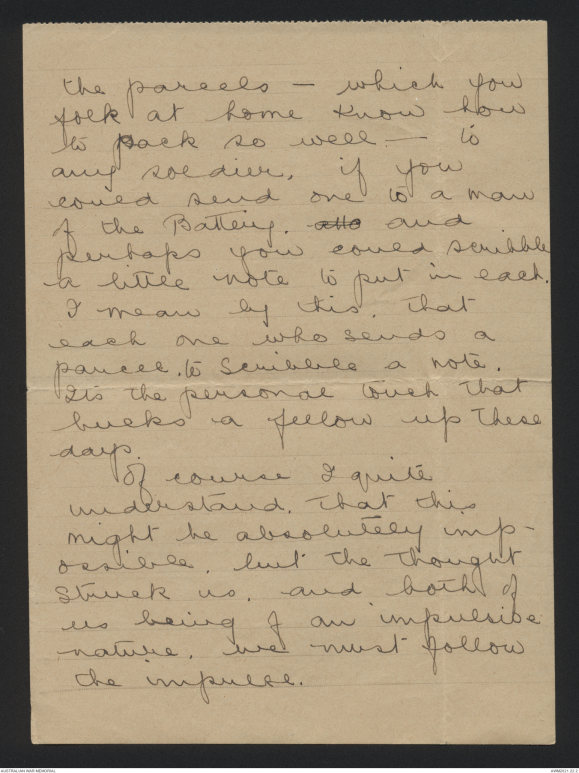 the parcels — which you
folk at home know how
to pack so well — to
any soldier, if you
could send one to a man
of the Battery. also and
perhaps you could scribble
a little note to put in each.
I mean by this, that
each one who sends a
parcel, to scribble a note.
Its the personal touch that
bucks a fellow up these
days.
Of course I quite
understand, that this
might be absolutely imp-
ossible, but the thought
struck us, and both of
us being of an impulsive
nature, we must follow
the impulse.
AUSTRALIAN WAR MEMORIAL